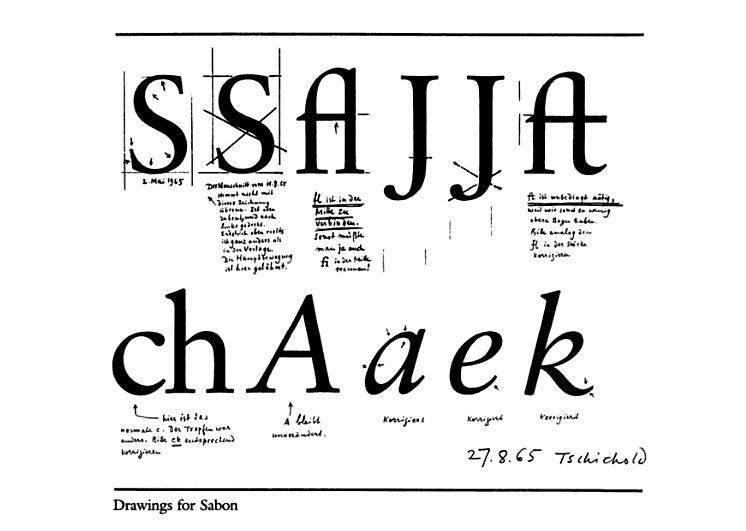 S S fl J J fl
2. Mai 1965
Der Umschnitt vom 19.8.65
stimmt nicht mit
dieser Zeichnung
überein. Ist oben
und nach
links gedreht.
Endstrich oben rechts
ist ganz anders als
in der Vorlage.
Die Hauptbewegung
ist hier gelähmt.
fl ist in der
Mitte zu
verbinden.
Sonst müßte
man ja auch
fi in der Mitte
trennen!
fl ist unbedingt nötig,
weil wir sonst zu wenig
obere Bogen haben.
Bitte analog dem
fl in der Stärke
korrigieren
ch A a e k
hier ist das
normale c. Der Tropfen war
anders. Bitte ck entsprechend
korrigieren
A bleibt
unverändert.
korrigiert
korrigiert
korrigiert
27.8.65 Tschichold
Drawings for Sabon